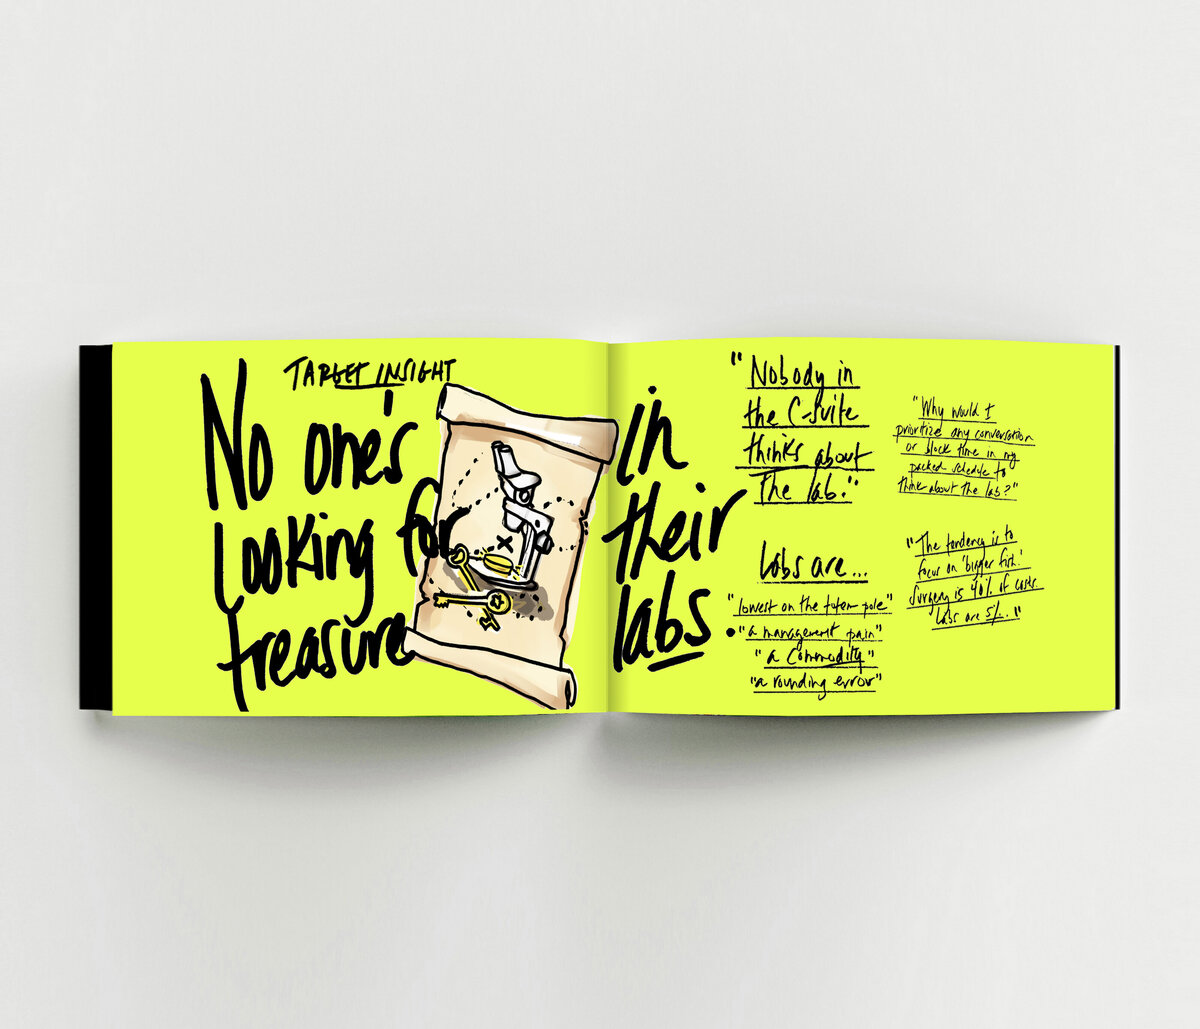 TARGET INSIGHT
No one's
looking for
treasure
in
their
labs.
"Nobody in
the C-Suite
thinks about
the lab."
Labs are...
"lowest on the totem pole"
"a management pain"
"a commodity"
"a rounding error"
"Why would I
prioritize any conversation
or block time in my
packed schedule to
think about the lab?"
"The tendency is to
focus on 'bigger fish.'
Surgery is 40% of costs.
Labs are 5%..."